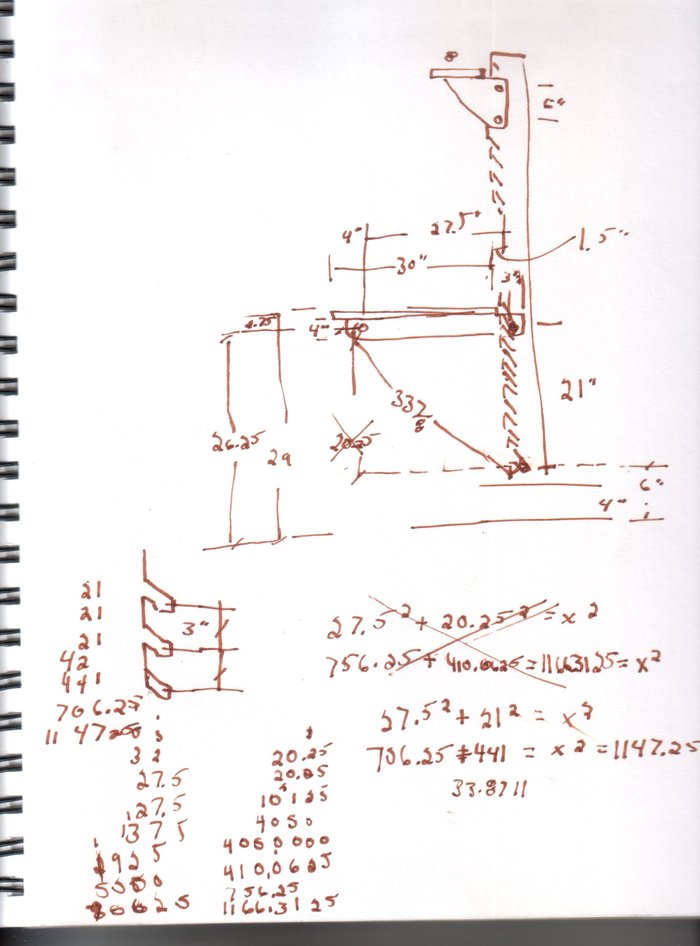 8
6"
27.5"
4"
1.5"
30"
3"
4"
21"
33 7/8
26.25
29
20.25
6"
4"
21
21
21
42
441
706.25
1147.25
3"
27.5² + 20.25² = x²
756.25 + 410.0625 = 1166.3125 = x²
27.5² + 21² = x²
706.25 + 441 = x² = 1147.25
33.8711
27.5
27.5
1375
1925
5500
20.25
20.25
10125
4050
400000
410.0625
756.25
1166.3125